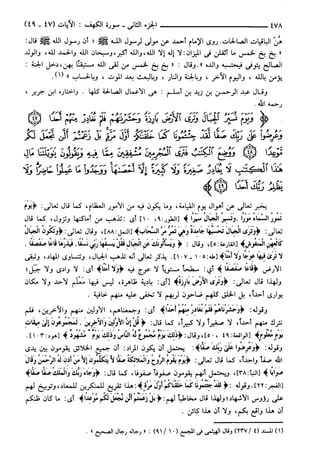 ٤٧٨ ــــــ الجزء الثاني - سورة الكهف : الآيات (٤٧ - ٤٩)
هنّ الباقيات الصالحات. روى الإمام أحمد عن مولى لرسول الله ﷺ أن رسول الله ﷺ قال:
« بخ بخ لخمس ما أثقلهن في الميزان: لا إله إلا الله، والله أكبر، وسبحان الله والحمد لله، والولد
الصالح يتوفى فيحتسبه والده »، وقال : « بخ بخ لخمس من لقي الله مستيقناً بهن، دخل الجنة :
يؤمن بالله ، واليوم الآخر ، وبالجنة والنار ، وبالبعث بعد الموت ، وبالحساب » (١).
وقال عبد الرحمن بن زيد بن أسلم : هي الأعمال الصالحة كلها . واختاره ابن جرير ،
رحمه الله.
﴿ وَيَوْمَ نُسَيِّرُ الْجِبَالَ وَتَرَى الْأَرْضَ بَارِزَةً وَحَشَرْنَاهُمْ فَلَمْ نُغَادِرْ مِنْهُمْ أَحَدًا ۝٤٧
وَعُرِضُوا عَلَى رَبِّكَ صَفًّا لَّقَدْ جِئْتُمُونَا كَمَا خَلَقْنَاكُمْ أَوَّلَ مَرَّةٍ بَلْ زَعَمْتُمْ أَلَّن نَّجْعَلَ لَكُم
مَّوْعِدًا ۝٤٨ وَوُضِعَ الْكِتَابُ فَتَرَى الْمُجْرِمِينَ مُشْفِقِينَ مِمَّا فِيهِ وَيَقُولُونَ يَا وَيْلَتَنَا مَالِ
هَٰذَا الْكِتَابِ لَا يُغَادِرُ صَغِيرَةً وَلَا كَبِيرَةً إِلَّا أَحْصَاهَا وَوَجَدُوا مَا عَمِلُوا حَاضِرًا وَلَا
يَظْلِمُ رَبُّكَ أَحَدًا ۝٤٩ ﴾
يخبر تعالى عن أهوال يوم القيامة، وما يكون فيه من الأمور العظام، كما قال تعالى: ﴿يَوْمَ
تَمُورُ السَّمَاءُ مَوْرًا . وَتَسِيرُ الْجِبَالُ سَيْرًا﴾ [الطور:٩، ١٠] أي : تذهب من أماكنها وتزول، كما قال
تعالى: ﴿وَتَرَى الْجِبَالَ تَحْسَبُهَا جَامِدَةً وَهِيَ تَمُرُّ مَرَّ السَّحَابِ﴾ [النمل:٨٨]، وقال تعالى: ﴿وَتَكُونُ الْجِبَالُ
كَالْعِهْنِ الْمَنفُوشِ﴾ [القارعة:٥]، وقال : ﴿ وَيَسْأَلُونَكَ عَنِ الْجِبَالِ فَقُلْ يَنسِفُهَا رَبِّي نَسْفًا . فَيَذَرُهَا قَاعًا صَفْصَفًا .
لا تَرَى فِيهَا عِوَجًا وَلا أَمْتًا﴾ [طه:١٠٥ - ١٠٧]. يذكر تعالى أنه تذهب الجبال، وتتساوى المهاد، وتبقى
الأرض ﴿قَاعًا صَفْصَفًا ﴾ أي: سطحاً مستوياً لا عوج فيه ﴿وَلا أَمْتًا﴾ أي: لا وادي ولا جبل؛
ولهذا قال تعالى: ﴿وَتَرَى الأَرْضَ بَارِزَةً﴾ [أي: بادية ظاهرة، ليس فيها مَعْلَم لأحد ولا مكان
يواري أحداً، بل الخلق كلهم ضاحون لربهم لا تخفى عليه منهم خافية .
وقوله: ﴿وَحَشَرْنَاهُمْ فَلَمْ نُغَادِرْ مِنْهُمْ أَحَدًا﴾ أي: وجمعناهم، الأولين منهم والآخرين، فلم
نترك منهم أحداً، لا صغيراً ولا كبيراً، كما قال: ﴿قُلْ إِنَّ الأَوَّلِينَ وَالآخِرِينَ . لَمَجْمُوعُونَ إِلَى مِيقَاتِ
يَوْمٍ مَّعْلُومٍ﴾ [الواقعة:٤٩، ٥٠]، وقال: ﴿ذَلِكَ يَوْمٌ مَّجْمُوعٌ لَّهُ النَّاسُ وَذَلِكَ يَوْمٌ مَّشْهُودٌ﴾ [هود:١٠٣].
وقوله: ﴿وَعُرِضُوا عَلَى رَبِّكَ صَفًّا﴾: يحتمل أن يكون المراد: أن جميع الخلائق يقومون بين يدي
الله صفاً واحداً، كما قال تعالى: ﴿يَوْمَ يَقُومُ الرُّوحُ وَالْمَلائِكَةُ صَفًّا لا يَتَكَلَّمُونَ إِلاَّ مَنْ أَذِنَ لَهُ الرَّحْمَنُ وَقَالَ
صَوَابًا﴾ [النبأ:٣٨]، ويحتمل أنهم يقومون صفوفاً صفوفاً، كما قال: ﴿وَجَاءَ رَبُّكَ وَالْمَلَكُ صَفًّا صَفًّا﴾
[الفجر:٢٢]. وقوله: ﴿ لَقَدْ جِئْتُمُونَا كَمَا خَلَقْنَاكُمْ أَوَّلَ مَرَّةٍ﴾: هذا تقريع للمنكرين للمعاد، وتوبيخ لهم
على رؤوس الأشهاد؛ ولهذا قال مخاطباً لهم: ﴿بَلْ زَعَمْتُمْ أَلَّن نَّجْعَلَ لَكُم مَّوْعِدًا﴾ أي: ما كان ظنكم
أن هذا واقع بكم، ولا أن هذا كائن .
(١) المسند (٤ / ٢٣٧) وقال الهيثمي في المجمع (١٠ / ٩١) : « رجاله رجال الصحيح » .